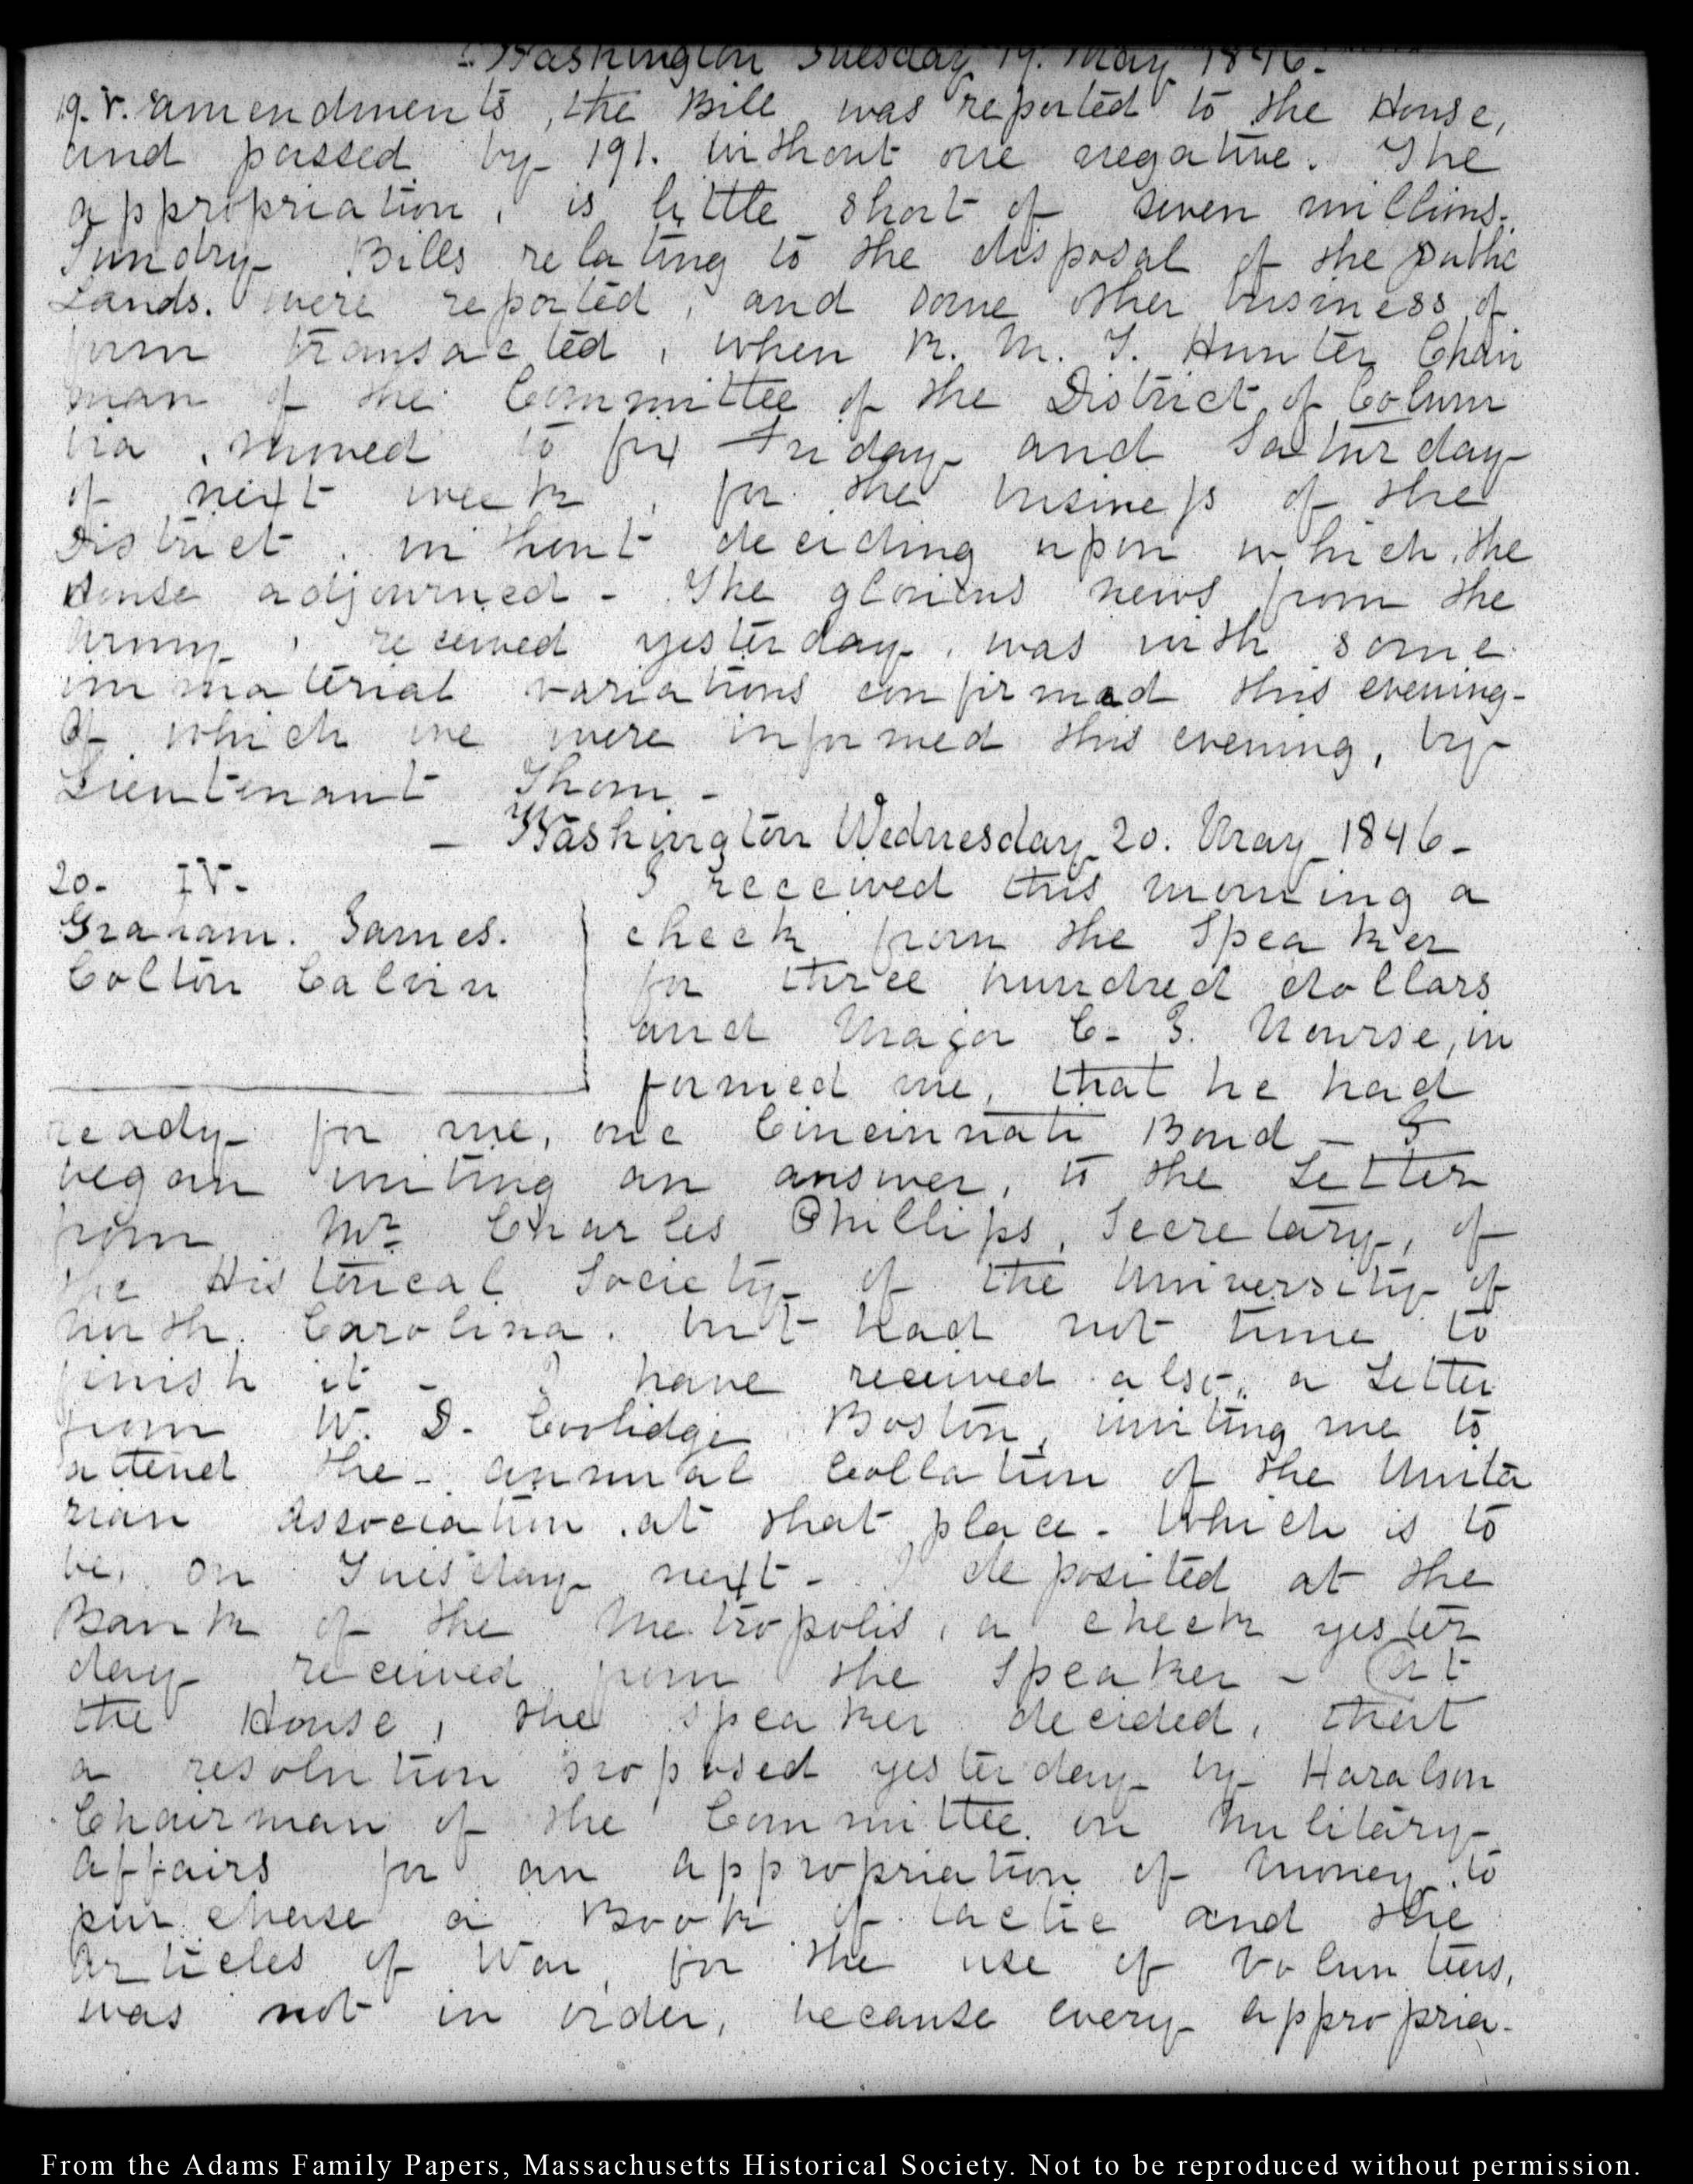 Washington Tuesday 19. May 1846.
19. V. amendments, the Bill was reported to the House,
and passed by 191. without one negative. The
appropriation, is little short of seven millions.
Sundry Bills relating to the disposal of the public
Lands. were reported, and some other business of
form transacted, when R. M. T. Hunter Chair
man of the Committee of the District of Colum
bia, moved to fix Friday and Saturday
of next week, for the business of the
District. without deciding upon which, the
House adjourned - The glorious news from the
Army, received yesterday, was with some
immaterial variations confirmed this evening-
Of which we were informed this evening, by
Lieutenant Thom -
- Washington Wednesday 20. May 1846-
20- IV-
Graham. James.
Colton Calvin
I received this morning a
check from the Speaker
for three hundred dollars
and Major C- J. Nourse, in
formed me, that he had
ready for me, one Cincinnati Bond - I
began writing an answer, to the Letter
from Mr Charles Phillips, Secretary, of
the Historical Society of the University of
North. Carolina. but had not time to
finish it - I have received also, a Letter
from W. D. Coolidge Boston, inviting me to
attend the- annual Collation of the Unita
rian Association. at that place. Which is to
be, on Tuesday next - I deposited at the
Bank of the Metropolis, a check yester
day received from the Speaker - At
the House, the Speaker decided, that
a resolution proposed yesterday by Haralson
Chairman of the Committee. on Military
Affairs for an appropriation of Money. to
purchase a Book of tactic and the
Articles of War, for the use of Volunteers,
was not in order, because every appropria-
From the Adams Family Papers, Massachusetts Historical Society. Not to be reproduced without permission.